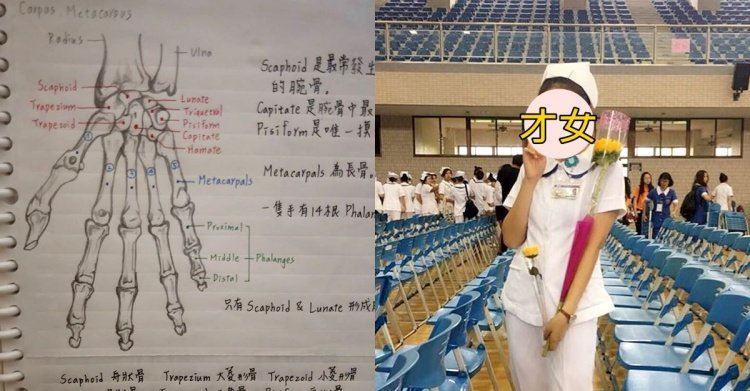 Carpus, Metacarpus
Radius
Ulna
Scaphoid 是最常發生
的腕骨。
Scaphoid
Lunate
Trapezium
Triquetral
Capitate 是腕骨中最
Trapezoid
Pisiform
Pisiform 是唯一摸
Capitate
Hamate
1
2
3
4
5
Metacarpals
Metacarpals 為長骨。
一隻手有14根 Phalan
Proximal
Middle
Phalanges
Distal
只有 Scaphoid & Lunate 形成
Scaphoid 舟狀骨 Trapezium 大菱形骨 Trapezoid 小菱形骨
才女